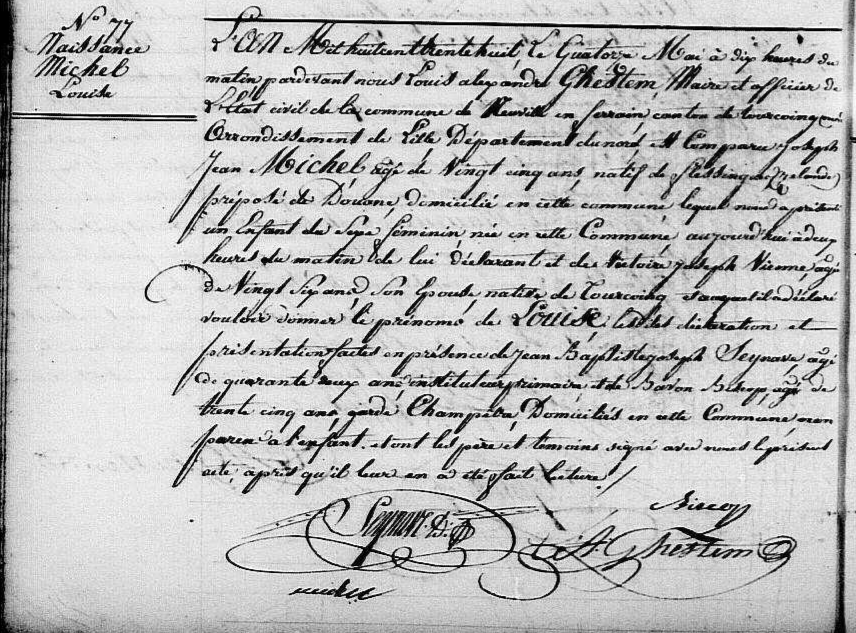 N° 77
Naissance
Michel
Louise
L'AN Mil huit cent trente huit, Le Quatorze Mai à dix heures du
matin pardevant nous Louis alexandre Ghestem Maire et officier de
L'Etat civil de la commune de Neuville en ferrain, canton de tourcoing
Arrondissement de Lille Département du nord, est Comparu Joseph
Jean Michel agé de Vingt cinq ans, natif de flessingue (Zelande)
préposé de Douane domicilié en cette commune lequel nous a présenté
un Enfant du Sexe féminin née en cette Commune aujourd'hui à deux
heures du matin de lui déclarant et de Victoire Joseph Vienne agée
de Vingt Six ans, Son Epouse, native de Tourcoing et auquel il a déclaré
vouloir donner le prénoms de Louise, lesdites déclaration et
présentation faites en présence de Jean Baptiste Joseph Seynave, agé
de quarante deux ans instituteur primaire et de Baron Biscop, agé de
trente cinq ans, garde Champêtre, Domiciliés en cette Commune, non
parens à l'enfant. et ont les père et temoins signé avec nous le présent
acte, après qu'il leur en a été fait lecture.
Biscop
Seynave
L. A. Ghestem
michel